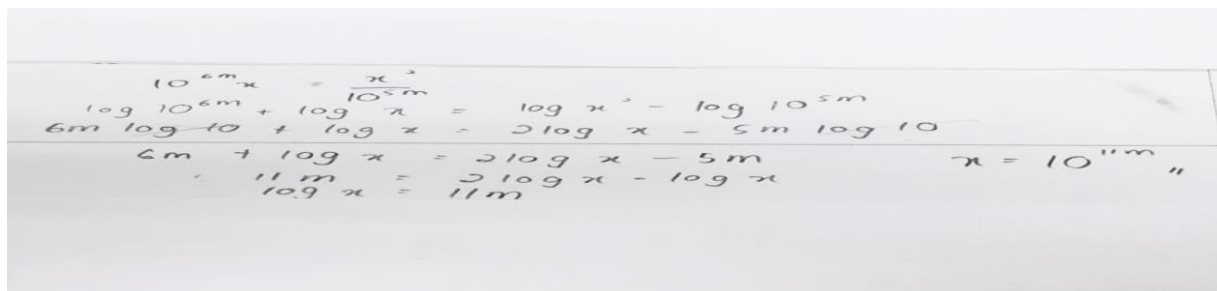 10^{6m}x = x^2/10^{5m}
log 10^{6m} + log x = log x^2 - log 10^{5m}
6m log 10 + log x = 2log x - 5m log 10
6m + log x = 2log x - 5m
11m = 2log x - log x
log x = 11m
x = 10^{11m} "